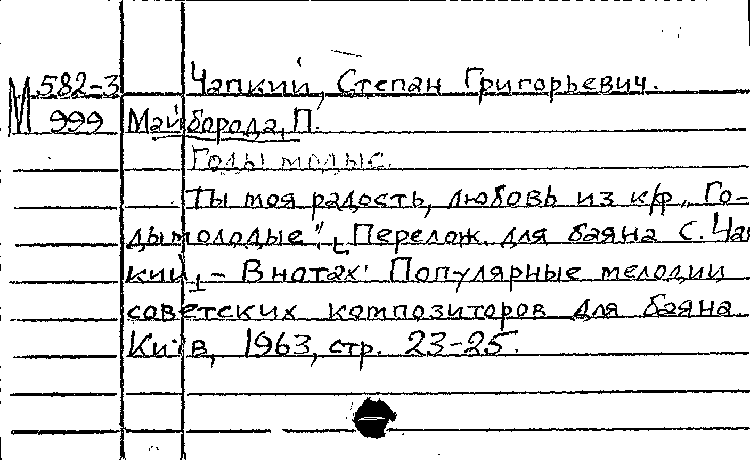 М 582-3 Чапкий, Степан Григорьевич.
999 Майборода, П.
Годы
Ты моя радость, любовь из к/ф „Го-
ды молодые". [Перелож. для баяна С. Чап
кий] – В нотах: Популярные мелодии
советских композиторов для баяна
Київ, 1963, стр. 23-25.